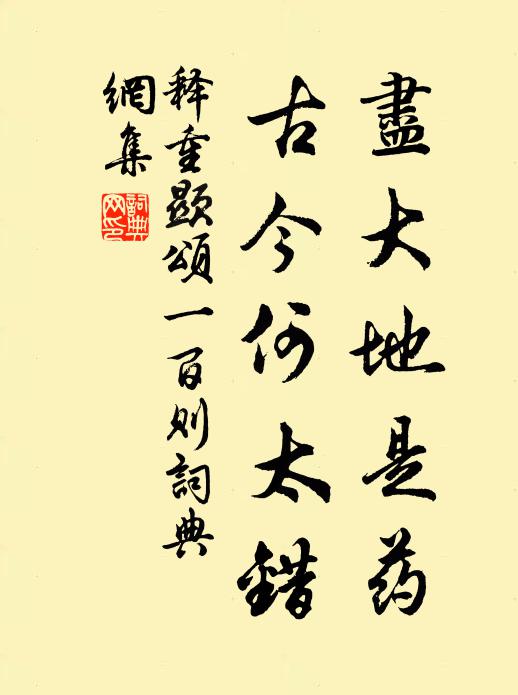 盡大地是药
古今何太錯
释重顕頌一百则詞典
網集
詞典
网印